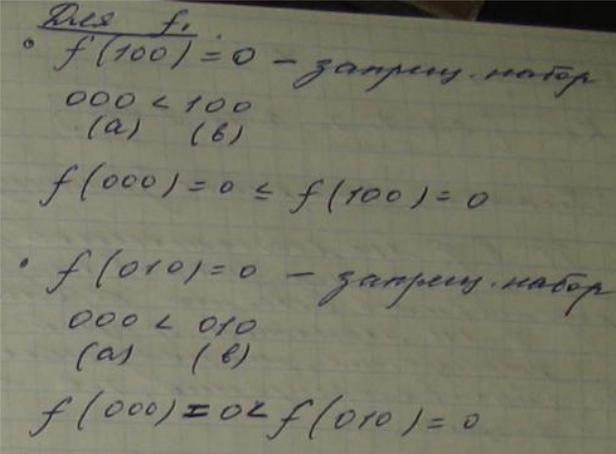 Для f₁
• f(100) = 0 – запрещ. набор
000 < 100
(а) (в)
f(000) = 0 ≤ f(100) = 0
• f(010) = 0 – запрещ. набор
000 < 010
(а) (в)
f(000) = 0 < f(010) = 0